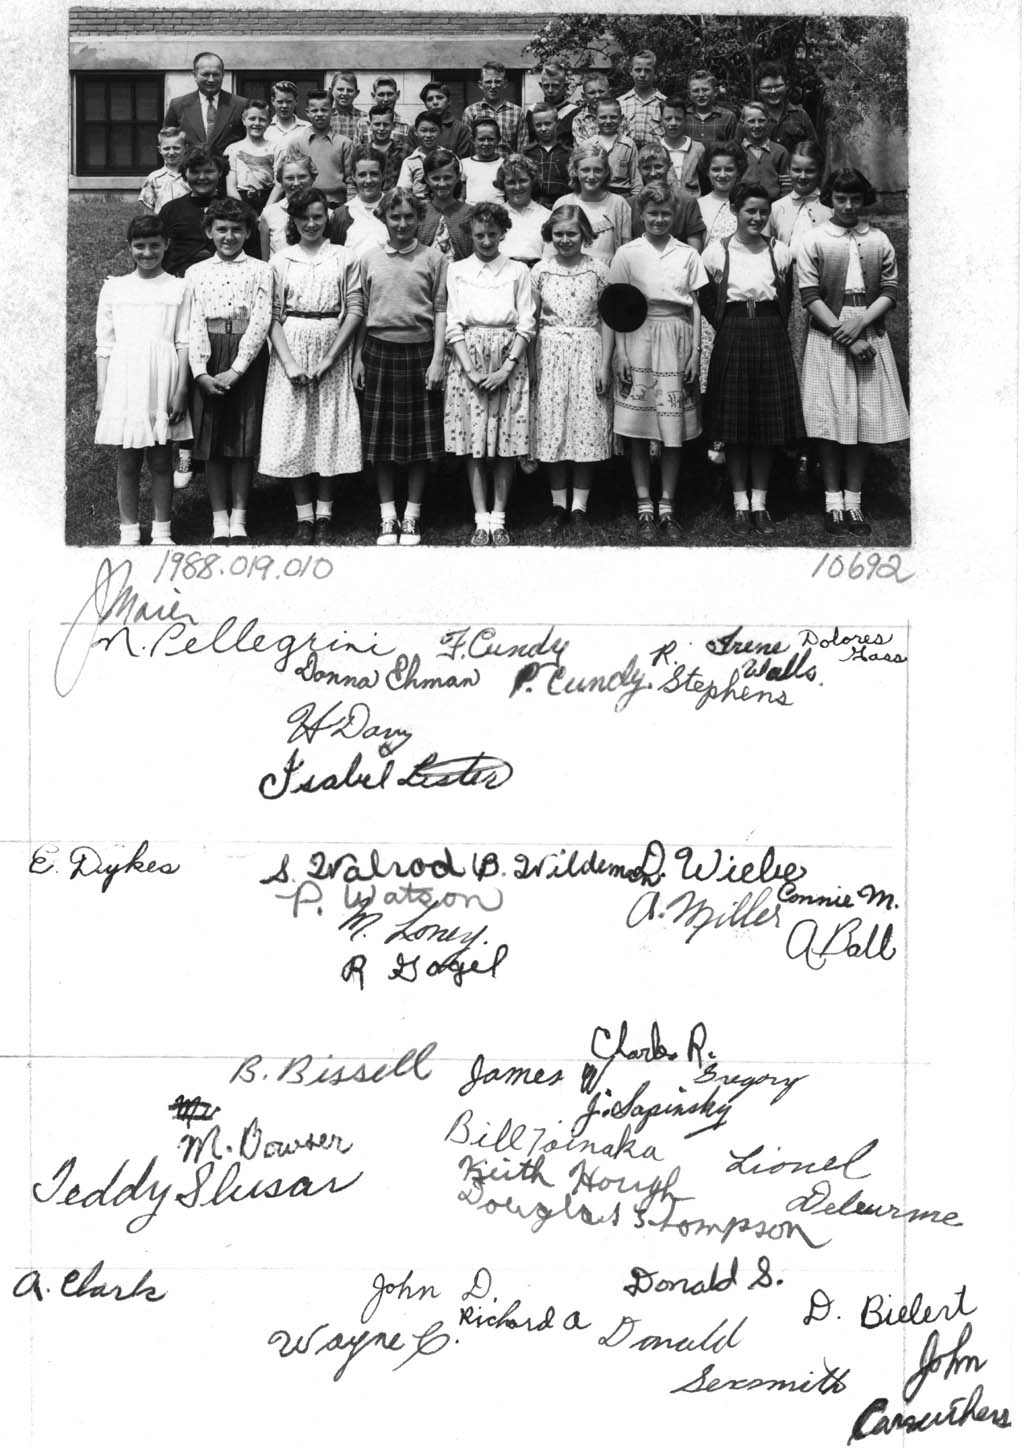 1988.019.010 10692
J Maier
N. Pellegrini F. Cundy R. Irene Dolores
Donna Ehman P. Cundy. Stephens Walls. Hass
H Davy
Isabel Lester
E. Dykes S. Walrod B. Wildeman D. Wiebe
P. Watson A. Miller Connie M.
M. Loney. A Ball
R Gogel
Clark R.
B. Bissell James W Gregory
J. Sapinsky
M. Dowser Bill Lionel
Teddy Slusar Keith Hough Deleurme
Douglas Thompson
A. Clark John D. Donald S. D. Bielert
Wayne C. Richard A Donald John
Sexsmith Carruthers